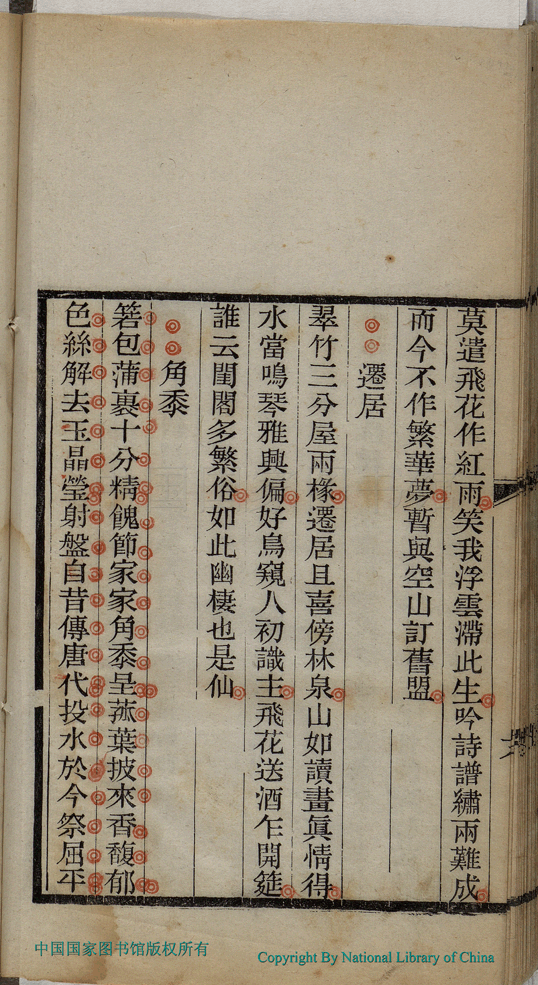 莫遣飛花作紅雨笑我浮雲滯此生吟詩譜繡兩難成
而今不作繁華夢暫與空山訂舊盟
遷居
翠竹三分屋兩椽遷居且喜傍林泉山如讀畫眞情得
水當鳴琴雅興偏好鳥窺人初識主飛花送酒乍開筵
誰云閨閣多繁俗如此幽棲也是仙
角黍
箬包蒲裹十分精餽節家家角黍呈菰葉披來香馥郁
色絲解去玉晶瑩射盤自昔傳唐代投水於今祭屈平
中国国家图书馆版权所有
Copyright By National Library of China